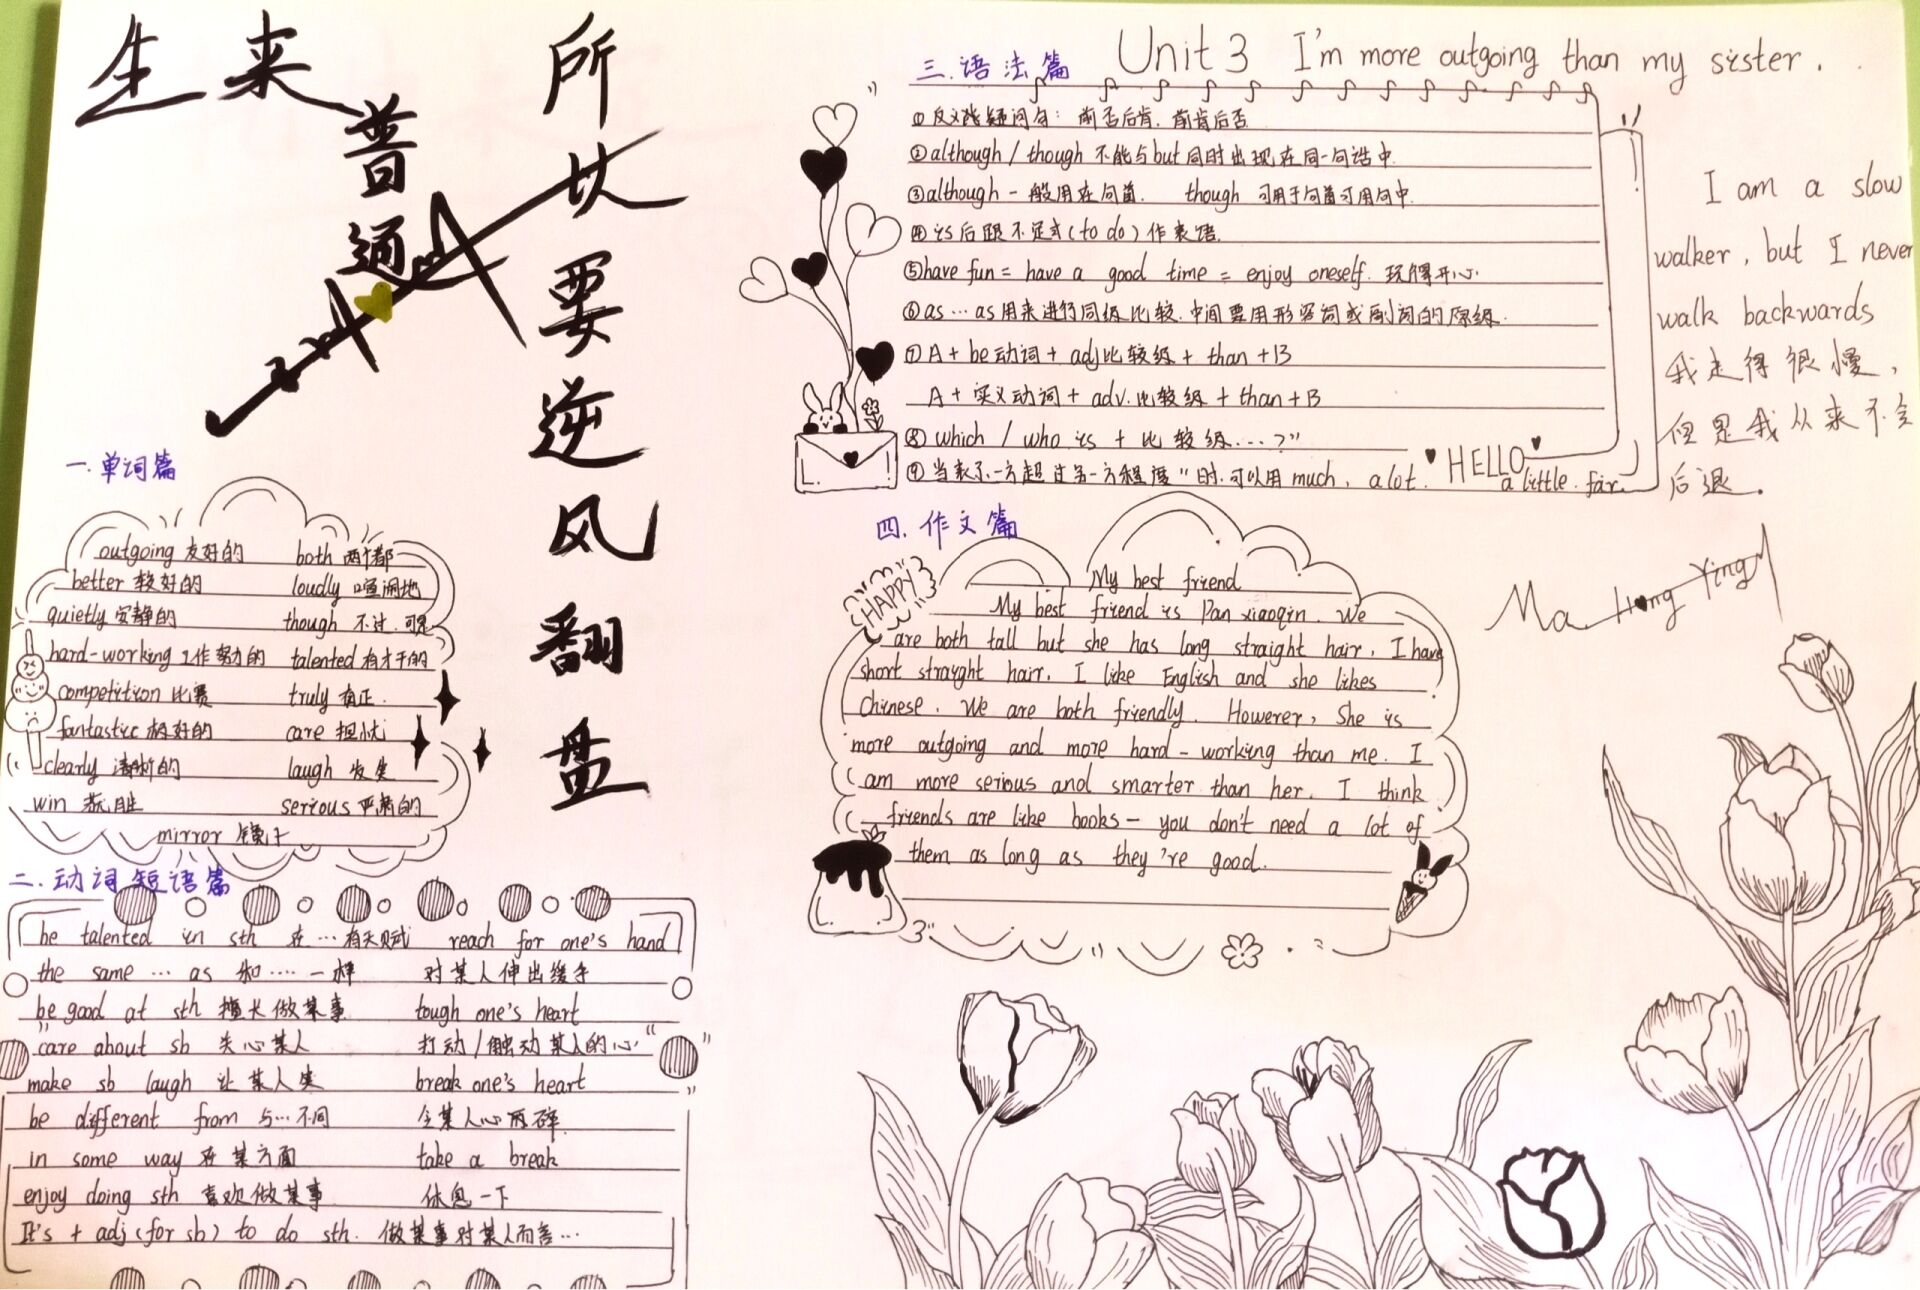 生来普通
所以要逆风翻盘
一.单词篇
outgoing 友好的 both 两个都
better 较好的 loudly 喧闹地
quietly 安静的 though 不过.可是
hard-working 工作努力的 talented 有才干的
competition 比赛 truly 真正.
fantastic 极好的 care 担忧
clearly 清晰的 laugh 发笑
win 获胜 serious 严肃的
mirror 镜子
二.动词短语篇
be talented in sth 在…有天赋 reach for one's hand
the same … as 和…. 一样 对某人伸出援手
be good at sth 擅长做某事 tough one's heart
care about sb 关心某人 打动/触动某人的心
make sb laugh 让某人笑 break one's heart
be different from 与…不同 令某人心而碎
in some way 在某方面 take a break
enjoy doing sth 喜欢做某事 休息一下
It's + adj (for sb) to do sth. 做某事对某人而言…
Unit 3 I'm more outgoing than my sister.
三.语法篇
①反义疑问句: 前否后肯.前肯后否
②although / though 不能与but同时出现在同一句话中.
③although 一般用在句首. though 可用于句首可用句中.
④is后跟不定式(to do)作表语.
⑤have fun = have a good time = enjoy oneself. 玩得开心.
⑥as…as用来进行同级比较.中间要用形容词或副词的原级.
⑦A + be动词 + adj比较级 + than +B
A + 实义动词 + adv.比较级 + than + B
⑧ which / who is + 比较级….?"
⑨当表示一方超过另一方程度"时.可以用 much, a lot. a little. far.
HELLO
I am a slow
walker, but I never
walk backwards
我走得很慢，
但是我从来不会
后退.
四.作文篇
HAPPY
My best friend
My best friend is Pan xiaoqin. We
are both tall but she has long straight hair, I have
short straight hair. I like English and she likes
Chinese. We are both friendly. However, She is
more outgoing and more hard-working than me. I
am more serious and smarter than her. I think
friends are like books - you don't need a lot of
them as long as they're good.
Ma Hong Ying